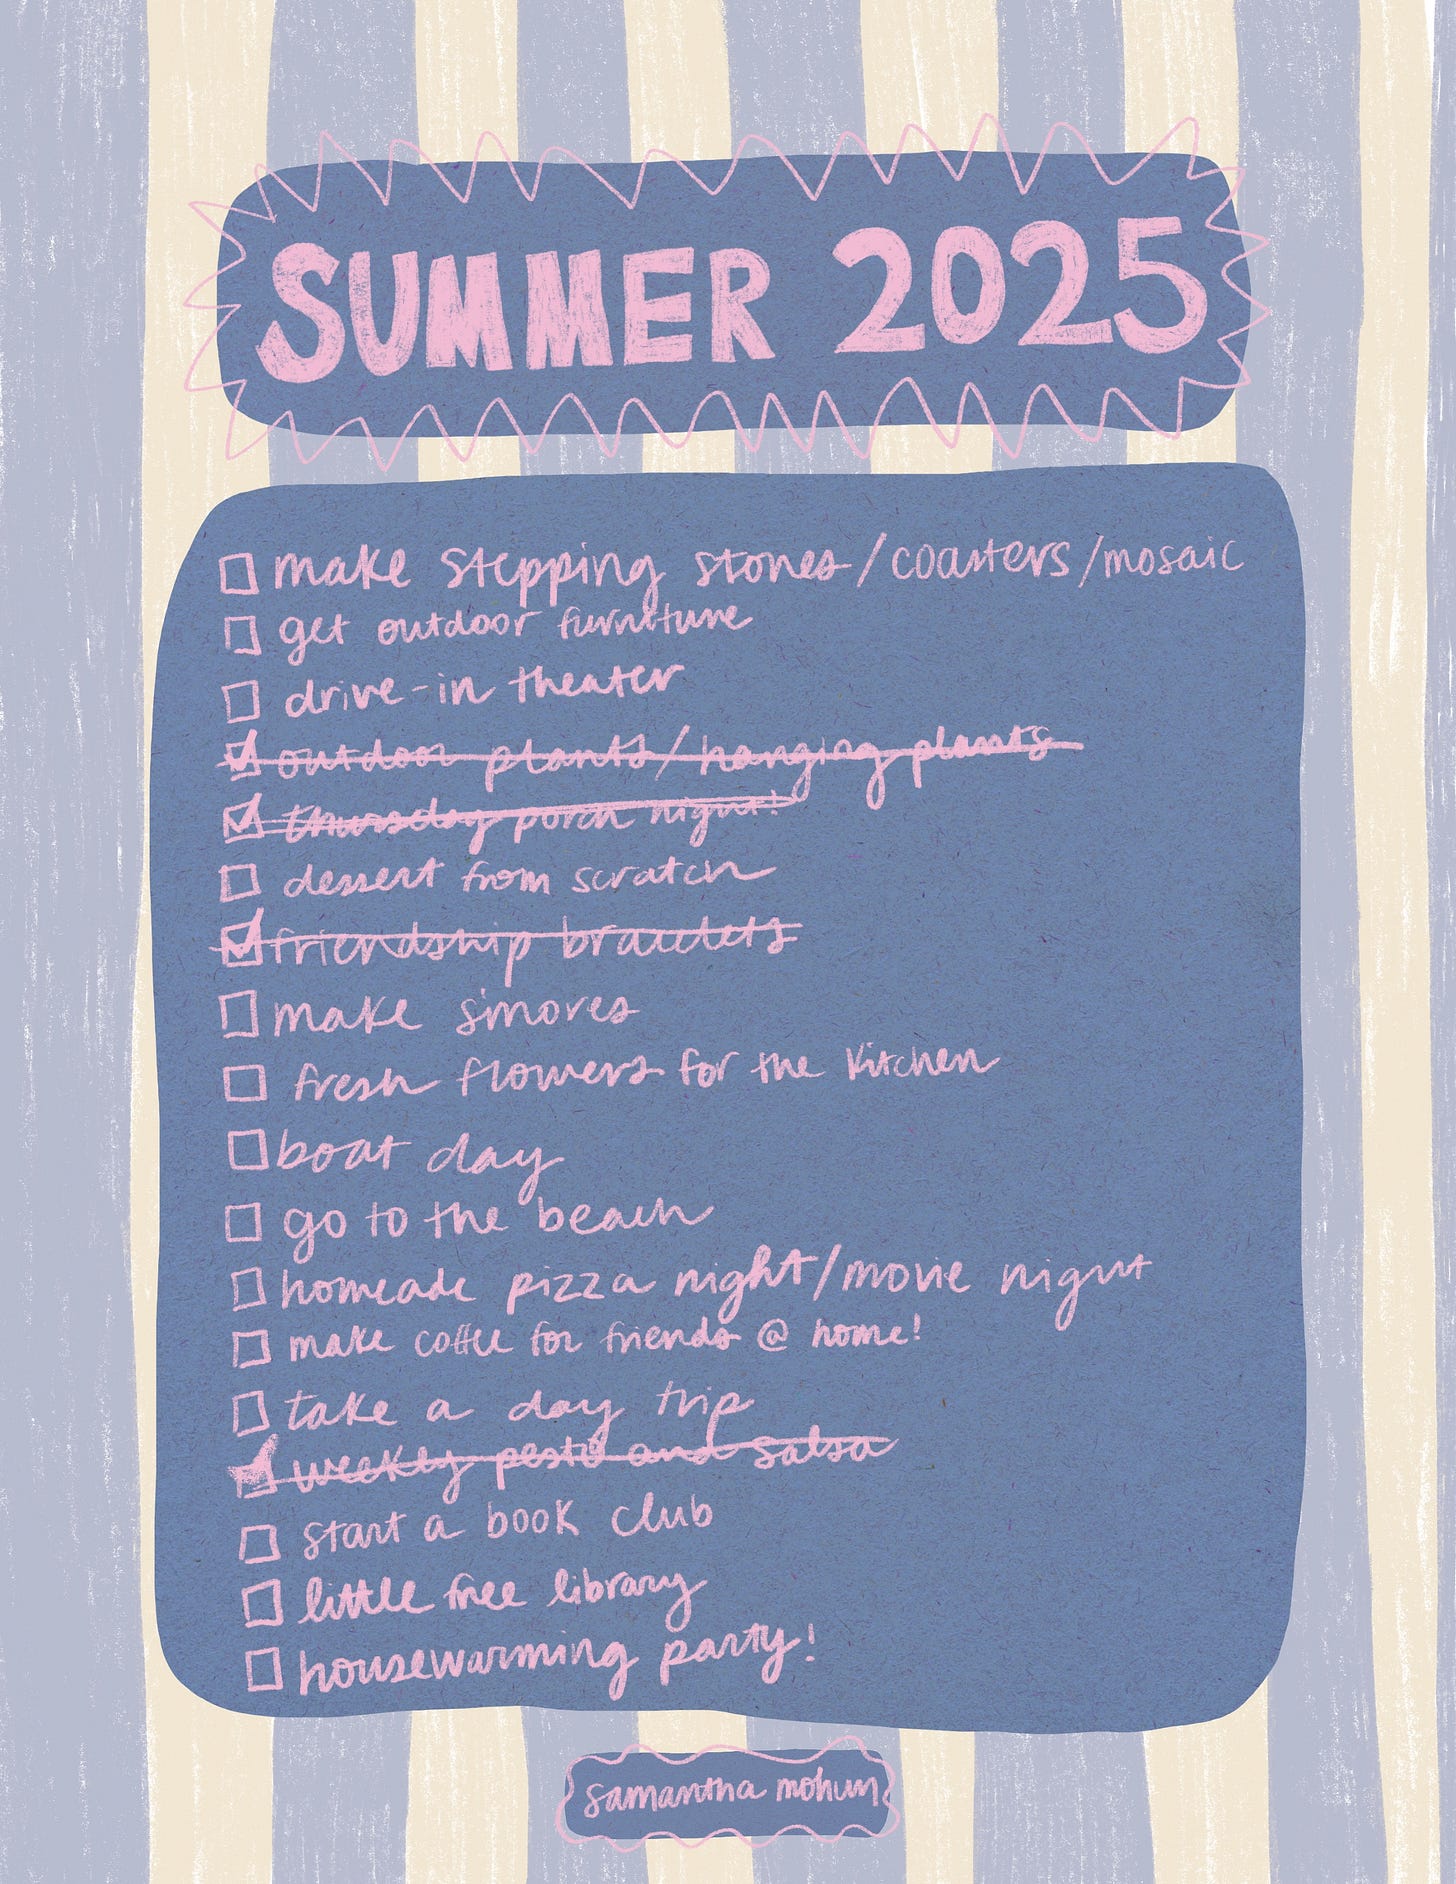 SUMMER 2025
make stepping stones/coasters/mosaic
get outdoor furniture
drive-in theater
outdoor plants/hanging plants
thursday porch night!
dessert from scratch
friendship bracelets
make s'mores
fresh flowers for the kitchen
boat day
go to the beach
homeade pizza night/movie night
make coffee for friends @ home!
take a day trip
weekly pesto and salsa
start a book club
little free library
housewarming party!
samantha mohun